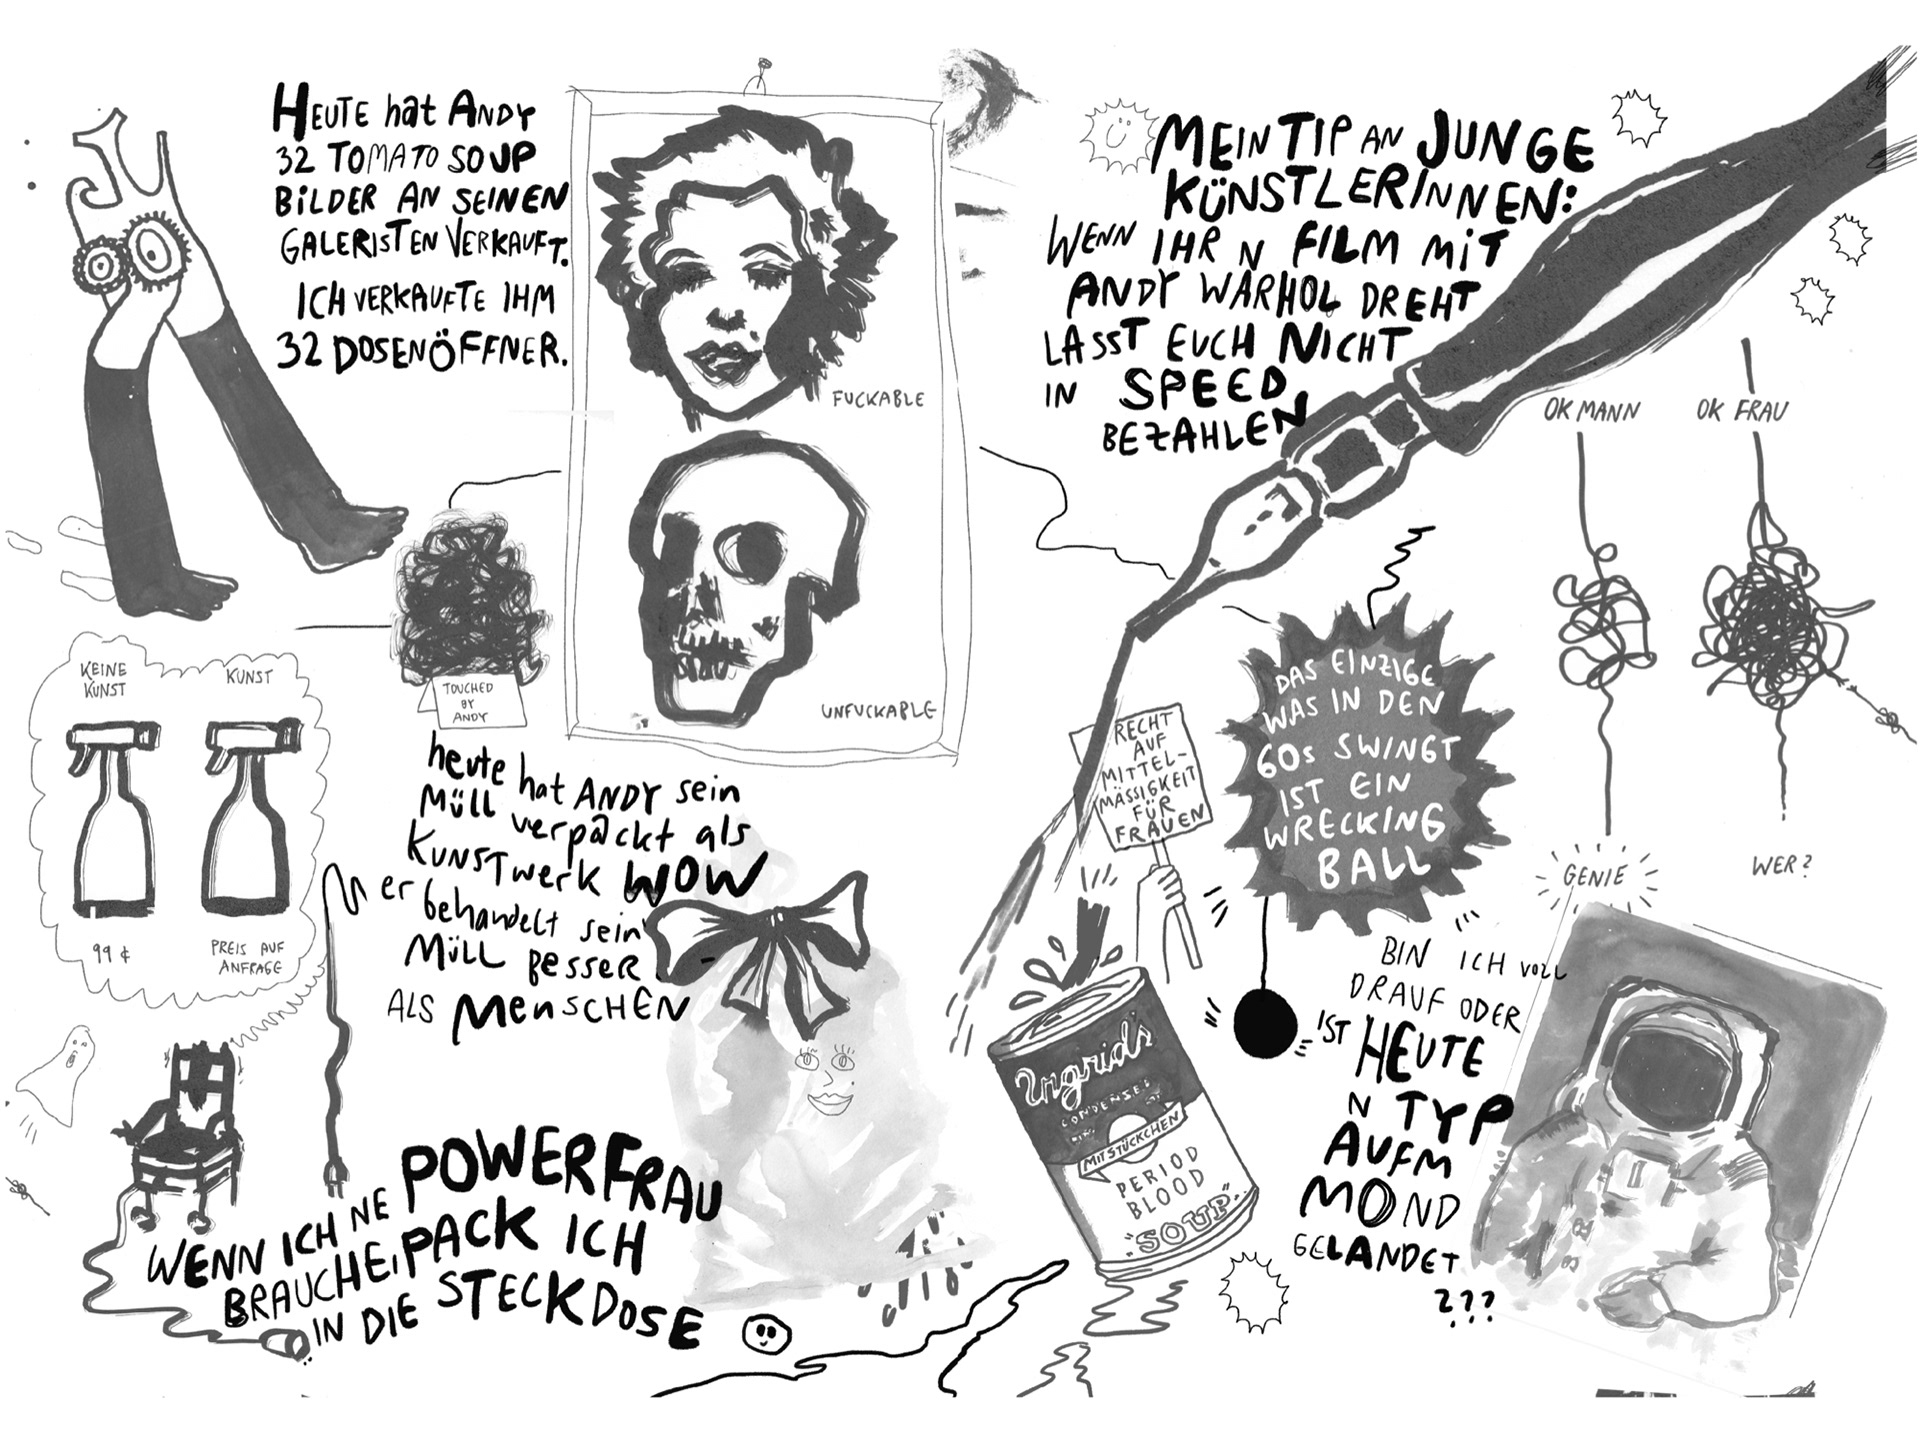 HEUTE hat ANDY
32 TOMATO SOUP
BILDER AN SEINEN
GALERISTEN VERKAUFT.
ICH VERKAUFTE IHM
32 DOSENÖFFNER.
FUCKABLE
UNFUCKABLE
TOUCHED
BY
ANDY
KEINE
KUNST
KUNST
99 ¢
PREIS AUF
ANFRAGE
heute hat ANDY sein
Müll verpackt als
KUNSTwerk WOW
er behandelt sein
Müll Besser
ALS MenSCHEN
WENN ICH NE POWERFRAU
BRAUCHE, PACK ICH
IN DIE STECKDOSE
MEIN TIP AN JUNGE
KÜNSTLERINNEN:
WENN IHR N FILM MIT
ANDY WARHOL DREHT
LASST EUCH NICHT
IN SPEED
BEZAHLEN
OK MANN
OK FRAU
GENIE
WER?
RECHT
AUF
MITTEL-
MÄSSIGKEIT
FÜR
FRAUEN
DAS EINZIGE
WAS IN DEN
60s SWINGT
IST EIN
WRECKING
BALL
Ingrid's
CONDENSED
MIT STÜCKCHEN
PERIOD
BLOOD
"SOUP"
BIN ICH VOLL
DRAUF ODER
IST HEUTE
N TYP
AUFM
MOND
GELANDET
???